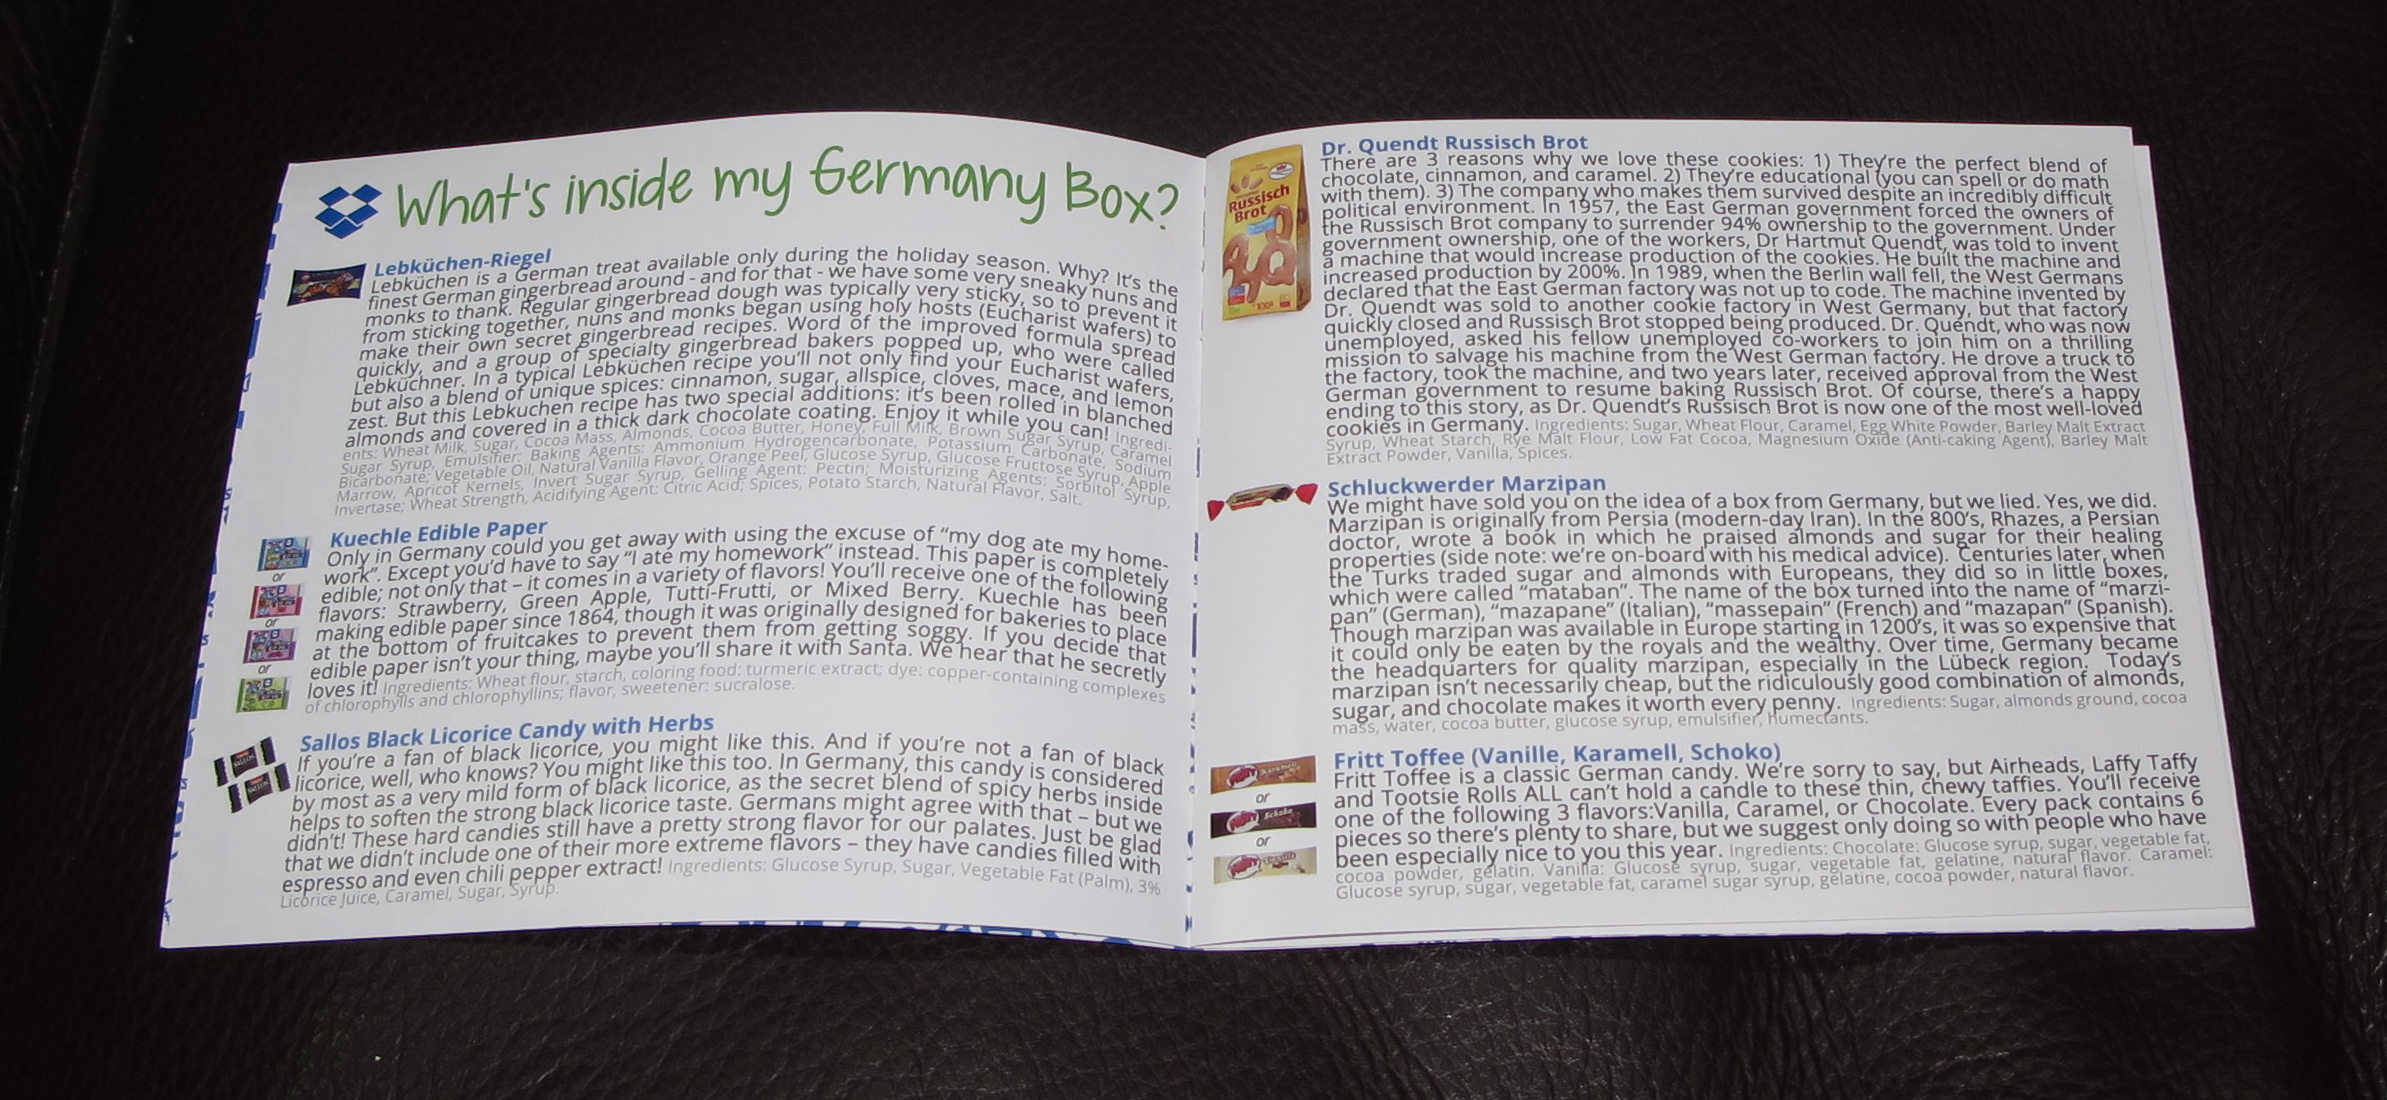 What's inside my Germany Box?
Lebküchen-Riegel
Lebküchen is a German treat available only during the holiday season. Why? It's the
finest German gingerbread around - and for that - we have some very sneaky nuns and
monks to thank. Regular gingerbread dough was typically very sticky, so to prevent it
from sticking together, nuns and monks began using holy hosts (Eucharist wafers) to
make their own secret gingerbread recipes. Word of the improved formula spread
quickly, and a group of specialty gingerbread bakers popped up, who were called
Lebküchner. In a typical Lebküchen recipe you'll not only find your Eucharist wafers,
but also a blend of unique spices: cinnamon, sugar, allspice, cloves, mace, and lemon
zest. But this Lebkuchen recipe has two special additions: it's been rolled in blanched
almonds and covered in a thick dark chocolate coating. Enjoy it while you can! Ingredi-
ents: Wheat Milk, Sugar, Cocoa Mass, Almonds, Cocoa Butter, Honey, Full Milk, Brown Sugar Syrup, Caramel
Sugar Syrup, Emulsifier; Baking Agents: Ammonium Hydrogencarbonate, Potassium Carbonate, Sodium
Bicarbonate; Vegetable Oil, Natural Vanilla Flavor, Orange Peel, Glucose Syrup, Glucose Fructose Syrup, Apple
Marrow, Apricot Kernels, Invert Sugar Syrup, Gelling Agent: Pectin; Moisturizing Agents: Sorbitol Syrup,
Invertase; Wheat Strength, Acidifying Agent: Citric Acid; Spices, Potato Starch, Natural Flavor, Salt.
Kuechle Edible Paper
Only in Germany could you get away with using the excuse of "my dog ate my home-
work". Except you'd have to say "I ate my homework" instead. This paper is completely
edible; not only that – it comes in a variety of flavors! You'll receive one of the following
flavors: Strawberry, Green Apple, Tutti-Frutti, or Mixed Berry. Kuechle has been
making edible paper since 1864, though it was originally designed for bakeries to place
at the bottom of fruitcakes to prevent them from getting soggy. If you decide that
edible paper isn't your thing, maybe you'll share it with Santa. We hear that he secretly
loves it! Ingredients: Wheat flour, starch, coloring food: turmeric extract; dye: copper-containing complexes
of chlorophylls and chlorophyllins; flavor, sweetener: sucralose.
or
or
or
Sallos Black Licorice Candy with Herbs
If you're a fan of black licorice, you might like this. And if you're not a fan of black
licorice, well, who knows? You might like this too. In Germany, this candy is considered
by most as a very mild form of black licorice, as the secret blend of spicy herbs inside
helps to soften the strong black licorice taste. Germans might agree with that – but we
didn't! These hard candies still have a pretty strong flavor for our palates. Just be glad
that we didn't include one of their more extreme flavors – they have candies filled with
espresso and even chili pepper extract! Ingredients: Glucose Syrup, Sugar, Vegetable Fat (Palm), 3%
Licorice Juice, Caramel, Sugar, Syrup.
SALLOS
SALLOS
Dr. Quendt Russisch Brot
There are 3 reasons why we love these cookies: 1) They're the perfect blend of
chocolate, cinnamon, and caramel. 2) They're educational (you can spell or do math
with them). 3) The company who makes them survived despite an incredibly difficult
political environment. In 1957, the East German government forced the owners of
the Russisch Brot company to surrender 94% ownership to the government. Under
government ownership, one of the workers, Dr Hartmut Quendt, was told to invent
a machine that would increase production of the cookies. He built the machine and
increased production by 200%. In 1989, when the Berlin wall fell, the West Germans
declared that the East German factory was not up to code. The machine invented by
Dr. Quendt was sold to another cookie factory in West Germany, but that factory
quickly closed and Russisch Brot stopped being produced. Dr. Quendt, who was now
unemployed, asked his fellow unemployed co-workers to join him on a thrilling
mission to salvage his machine from the West German factory. He drove a truck to
the factory, took the machine, and two years later, received approval from the West
German government to resume baking Russisch Brot. Of course, there's a happy
ending to this story, as Dr. Quendt's Russisch Brot is now one of the most well-loved
cookies in Germany. Ingredients: Sugar, Wheat Flour, Caramel, Egg White Powder, Barley Malt Extract
Syrup, Wheat Starch, Rye Malt Flour, Low Fat Cocoa, Magnesium Oxide (Anti-caking Agent), Barley Malt
Extract Powder, Vanilla, Spices.
Russisch
Brot
100g
Schluckwerder Marzipan
We might have sold you on the idea of a box from Germany, but we lied. Yes, we did.
Marzipan is originally from Persia (modern-day Iran). In the 800's, Rhazes, a Persian
doctor, wrote a book in which he praised almonds and sugar for their healing
properties (side note: we're on-board with his medical advice). Centuries later, when
the Turks traded sugar and almonds with Europeans, they did so in little boxes,
which were called "mataban". The name of the box turned into the name of "marzi-
pan" (German), "mazapane" (Italian), "massepain" (French) and "mazapan" (Spanish).
Though marzipan was available in Europe starting in 1200's, it was so expensive that
it could only be eaten by the royals and the wealthy. Over time, Germany became
the headquarters for quality marzipan, especially in the Lübeck region. Today's
marzipan isn't necessarily cheap, but the ridiculously good combination of almonds,
sugar, and chocolate makes it worth every penny. Ingredients: Sugar, almonds ground, cocoa
mass, water, cocoa butter, glucose syrup, emulsifier, humectants.
Fritt Toffee (Vanille, Karamell, Schoko)
Fritt Toffee is a classic German candy. We're sorry to say, but Airheads, Laffy Taffy
and Tootsie Rolls ALL can't hold a candle to these thin, chewy taffies. You'll receive
one of the following 3 flavors:Vanilla, Caramel, or Chocolate. Every pack contains 6
pieces so there's plenty to share, but we suggest only doing so with people who have
been especially nice to you this year. Ingredients: Chocolate: Glucose syrup, sugar, vegetable fat,
cocoa powder, gelatin. Vanilla: Glucose syrup, sugar, vegetable fat, gelatine, natural flavor. Caramel:
Glucose syrup, sugar, vegetable fat, caramel sugar syrup, gelatine, cocoa powder, natural flavor.
or
Schoko
or